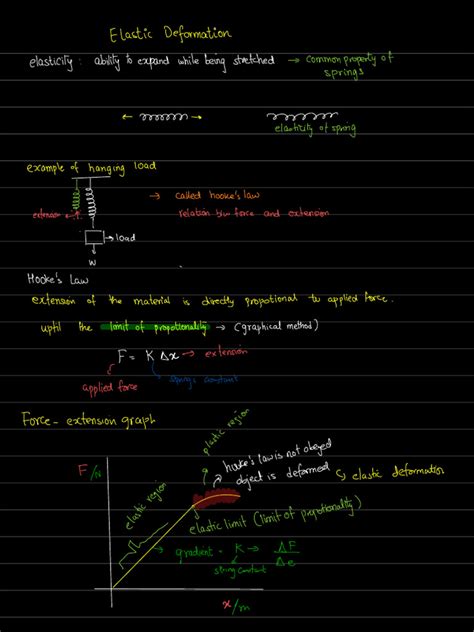 Elastic Deformation
elasticity : ability to expand while being stretched → common property of
springs
← →
elasticity of spring
example of hanging load
extension
→ called hooke's law
relation b/w force and extension
→ load
W
Hooke's Law
extension of the material is directly propotional to applied force.
uptil the limit of propotionality → (graphical method)
F = K Δx → extension
applied force
spring constant
Force - extension graph
plastic region
hooke's law is not obeyed
object is deformed
elastic deformation
F/N
elastic region
elastic limit (limit of propotionality)
→ gradient = K → ΔF
Δe
string constant
x/m